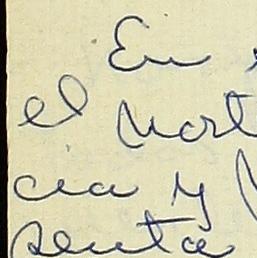 En
el nort
cia y
senta